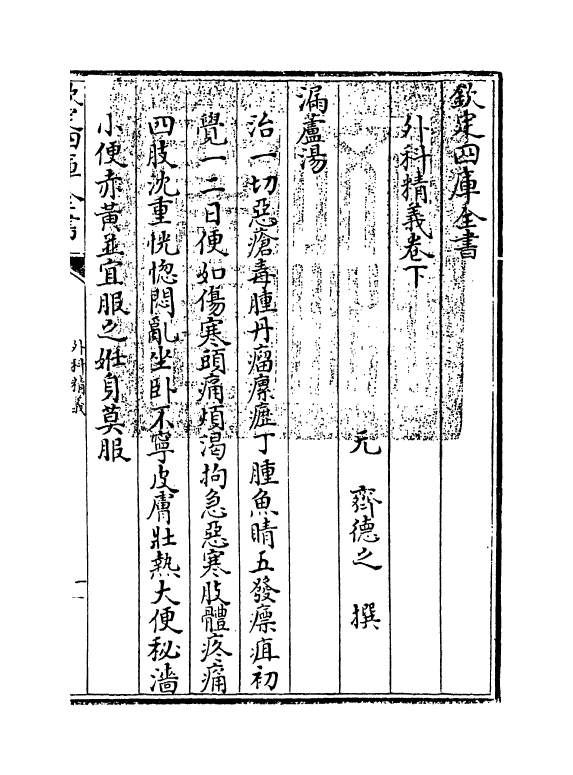 欽定四庫全書
外科精義卷下
元 齊德之 撰
漏蘆湯
治一切惡瘡毒腫丹瘤瘰癧丁腫魚睛五發瘭疽初
覺一二日便如傷寒頭痛煩渴拘急惡寒肢體疼痛
四肢沈重恍惚悶亂坐卧不寧皮膚壯熱大便秘濇
小便赤黃並宜服之姙身莫服
欽定四庫全書
外科精義